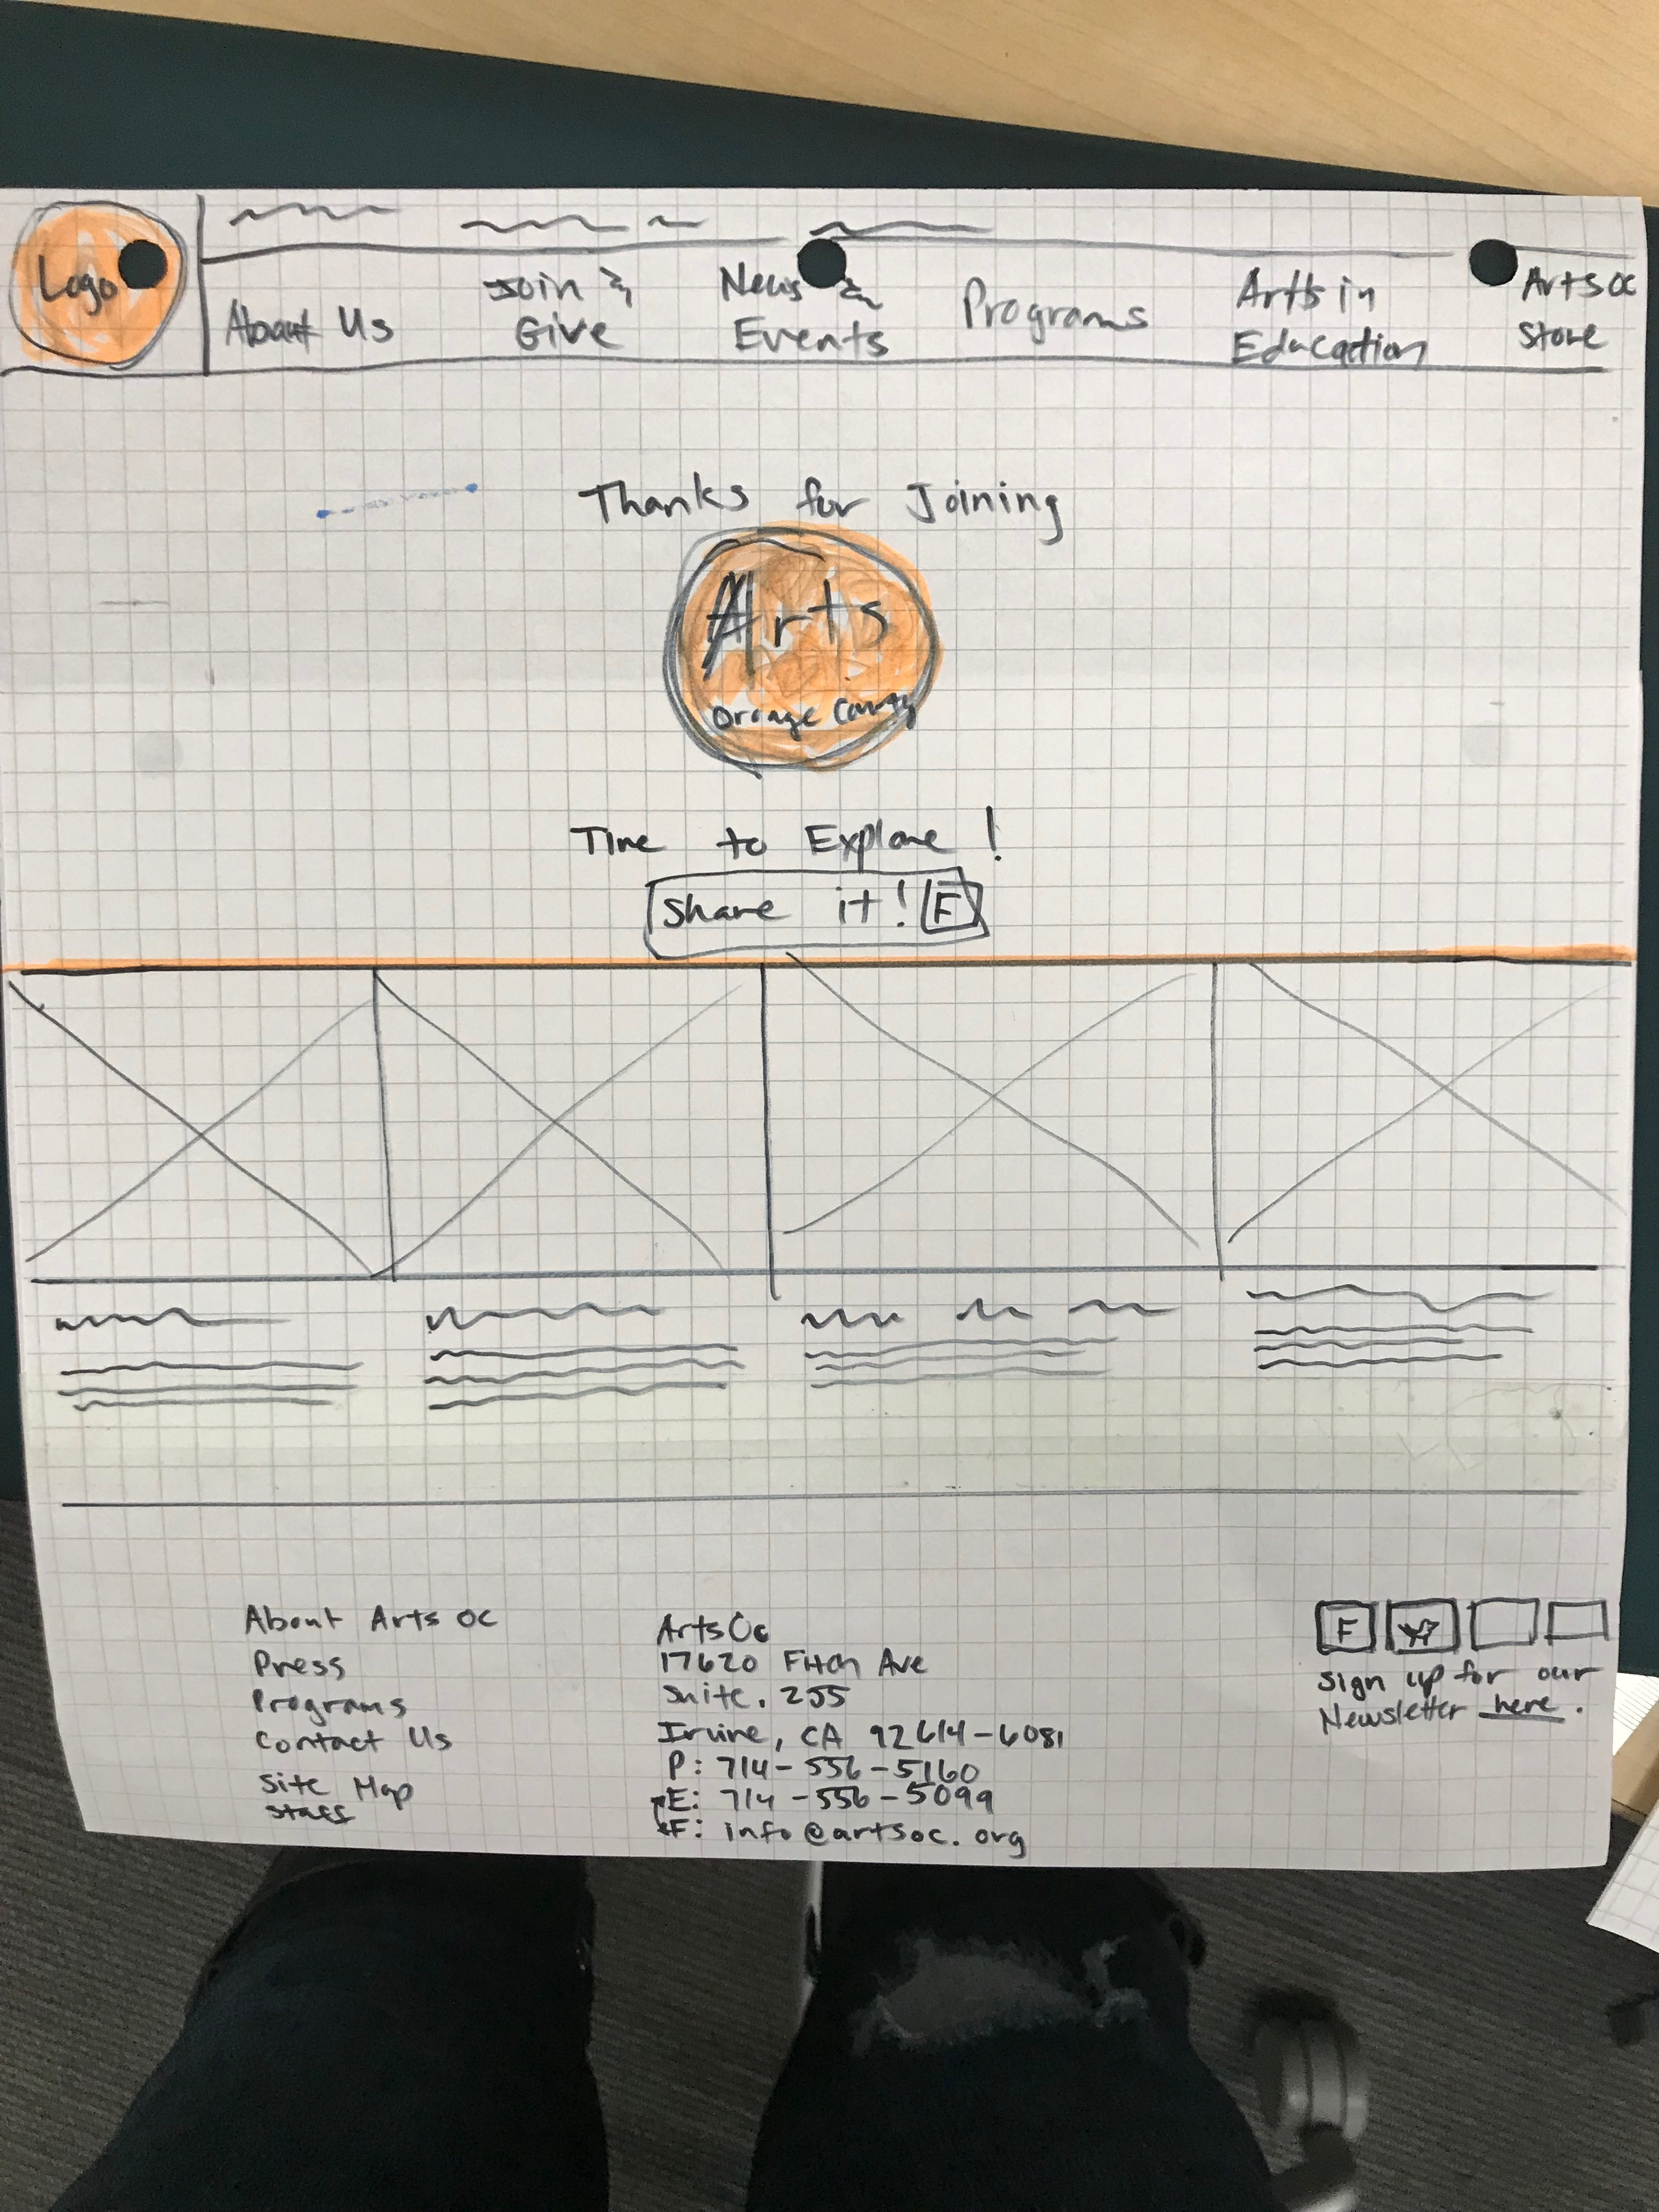 Logo
About Us
Join &
Give
News &
Events
Programs
Arts in
Education
Arts OC
Store
Thanks for Joining
Arts
Orange County
Time to Explore!
Share it! F
About Arts OC
Press
Programs
Contact Us
Site Map
Staff
ArtsOc
17620 Fitch Ave
Suite. 255
Irvine, CA 92614-6081
P: 714-556-5160
E: 714-556-5099
F: info@artsoc.org
F
Sign up for our
Newsletter here.